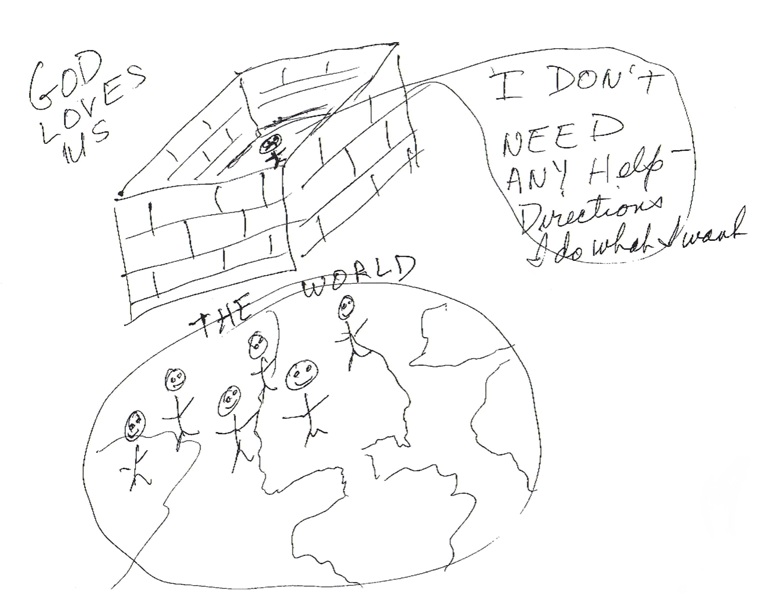 GOD
LOVES
US
I DON'T
NEED
ANY Help-
Directions
I do what I want
THE WORLD